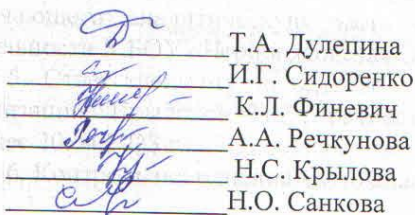 Т.А. Дулепина
И.Г. Сидоренко
К.Л. Финевич
А.А. Речкунова
Н.С. Крылова
Н.О. Санкова